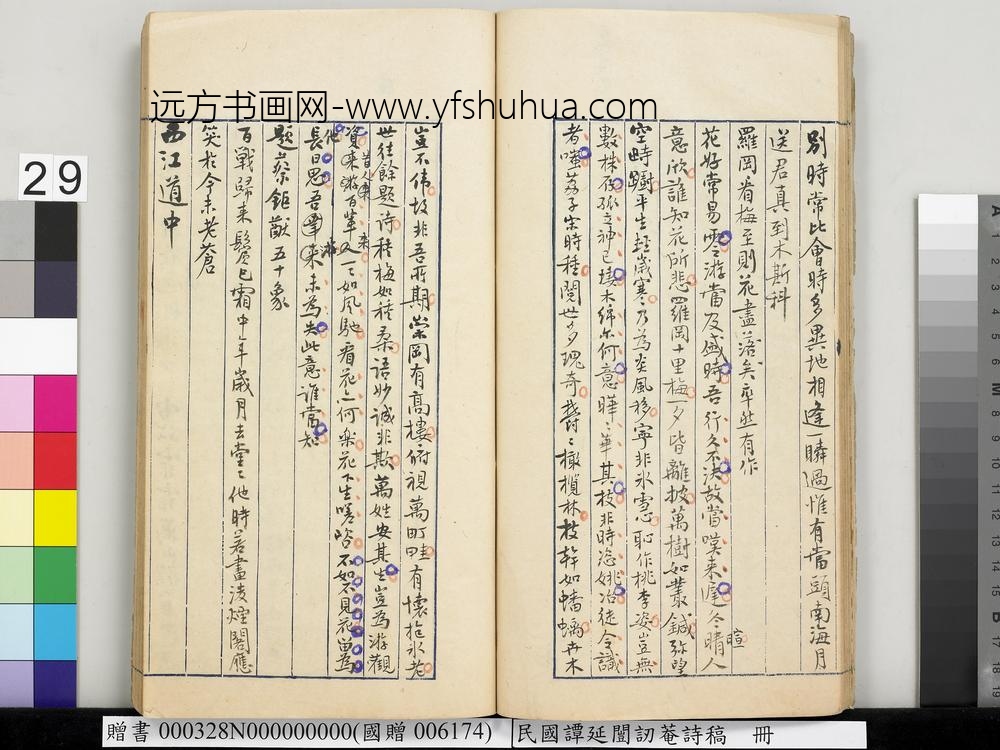 远方书画网-www.yfshuhua.com
別時常比會時多異地相逢一瞬過惟有當頭南海月
送君真到木斯科
羅岡看梅至則花盡落矣率然有作
花好常易零游當及盛時吾行久不決故當嘆來遲冬晴人
暄
意欣誰知花所悲羅岡十里梅一夕皆離披萬樹如叢鍼弥望
空畸平生輕歲寒乃為炎風移寧非冰雪心恥作桃李姿豈無
數株殘張立神已木綿尔何意曄曄華其枝非時恣姚冶徒令識
者嗤荔子宋時種閱世多瑰奇鬱鬱橄欖林枝幹如蟠螭卉木
豈不偉故非吾所期崇岡有高樓俯視萬町畦有懷抱冰老
世往餘題詩種梅如種桑語妙誠非欺萬姓安其生豈為游觀
昔人來
資來游百輩又一一如風馳看花亦何樂花下生嗟咨不如不見花留為
他
長日思吾來未為失此意誰當知
題蔡鉅猷五十象
百戰歸來鬢已霜中年歲月去堂堂他時若畫淩煙閣應
笑於今未老蒼
西江道中
29
贈書 000328N000000000(國贈 006174)
民國譚延闓訒菴詩稿 冊